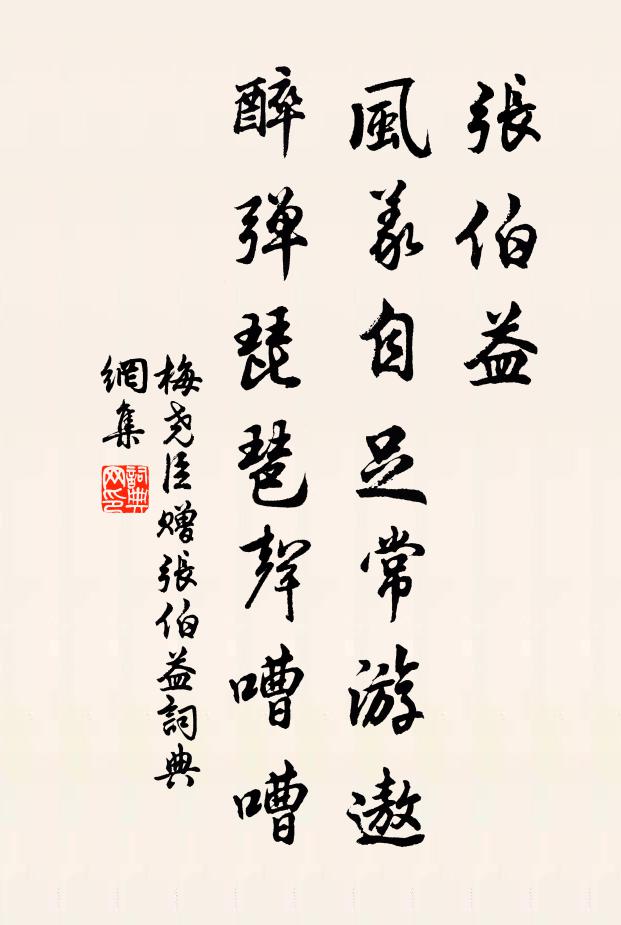 張伯益
風義自足常游遨
醉弹琵琶聲嘈嘈
梅尧臣赠張伯益詞典
網集
詞典網印